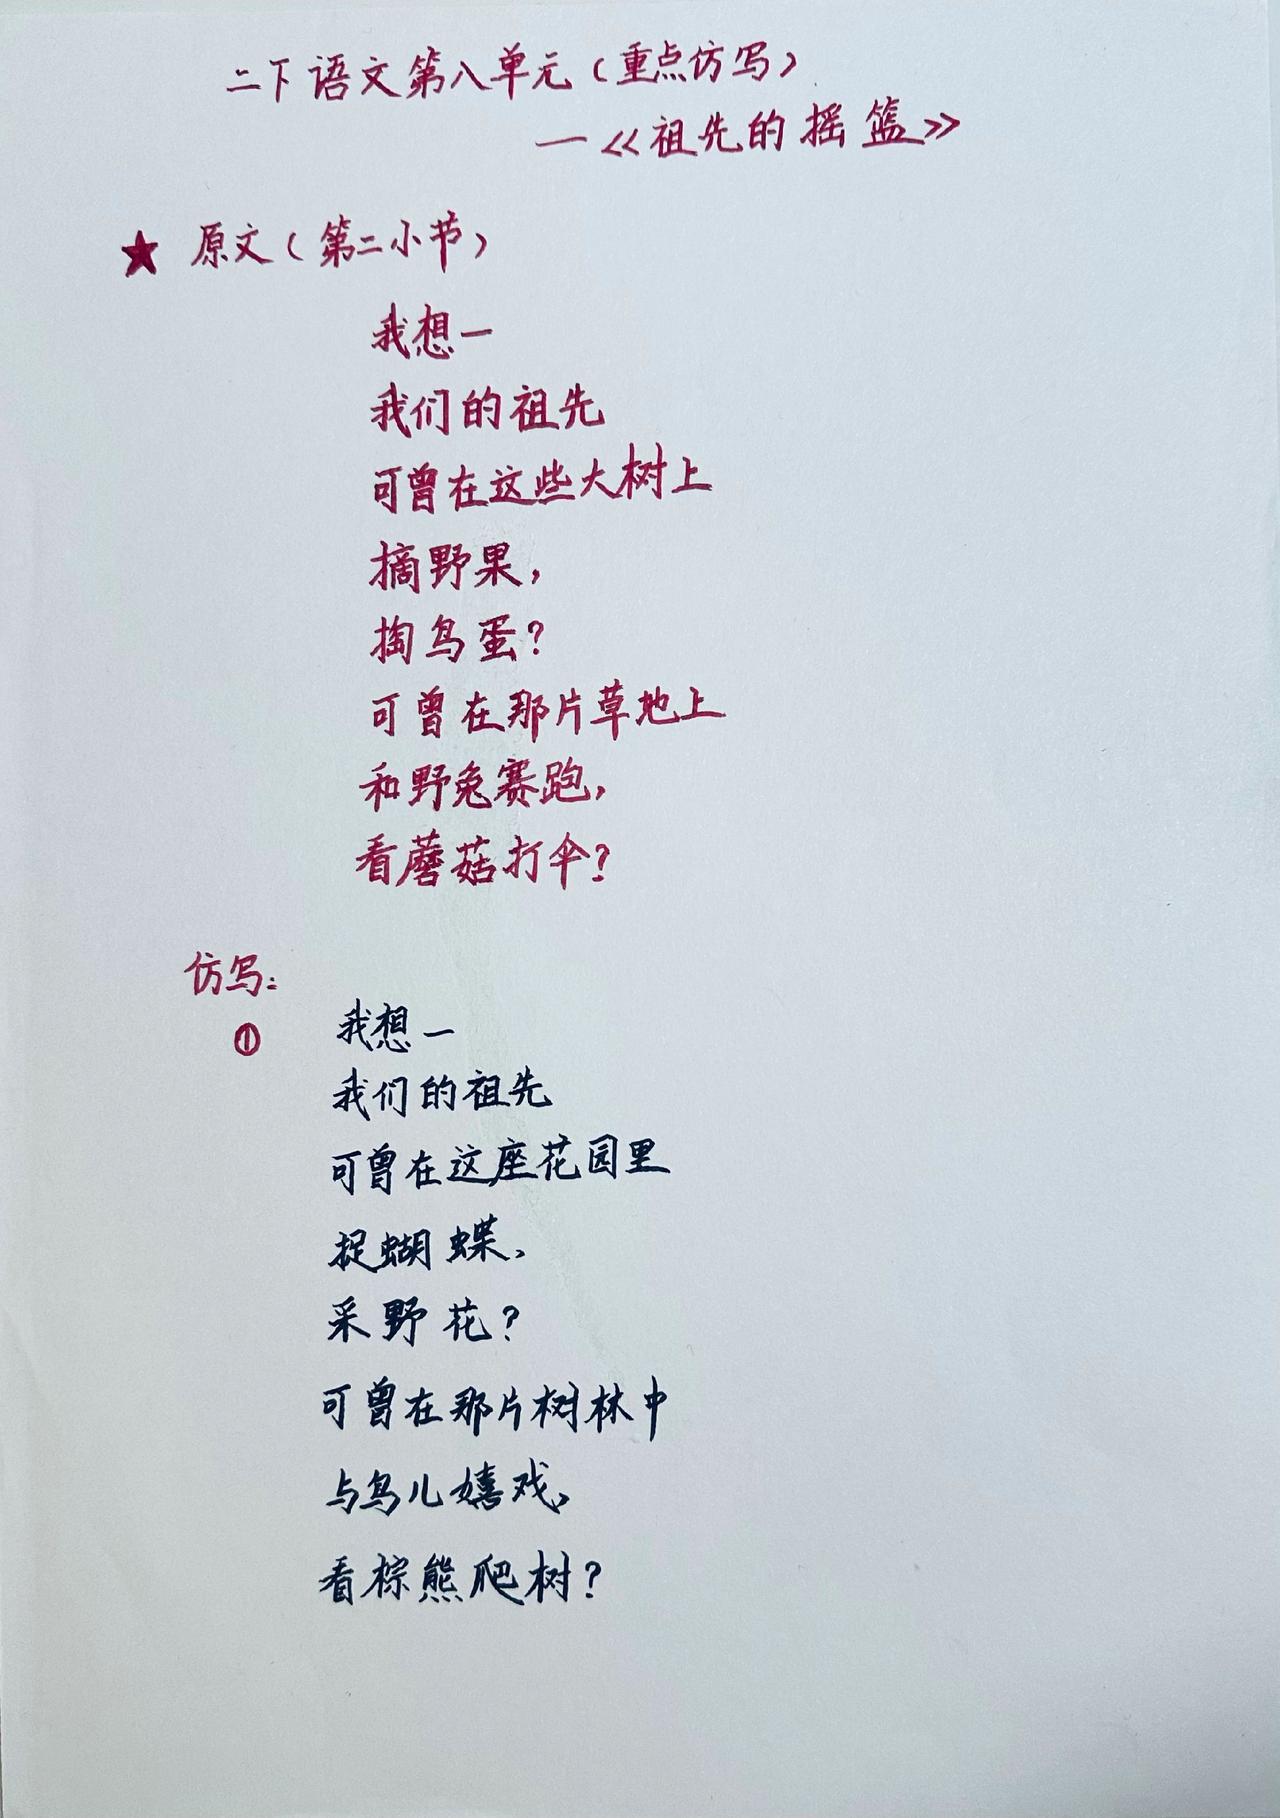 二下语文第八单元（重点仿写）
—《祖先的摇篮》
★ 原文（第二小节）
我想—
我们的祖先
可曾在这些大树上
摘野果，
掏鸟蛋？
可曾在那片草地上
和野兔赛跑，
看蘑菇打伞？
仿写：
① 我想—
我们的祖先
可曾在这座花园里
捉蝴蝶、
采野花？
可曾在那片树林中
与鸟儿嬉戏，
看棕熊爬树？